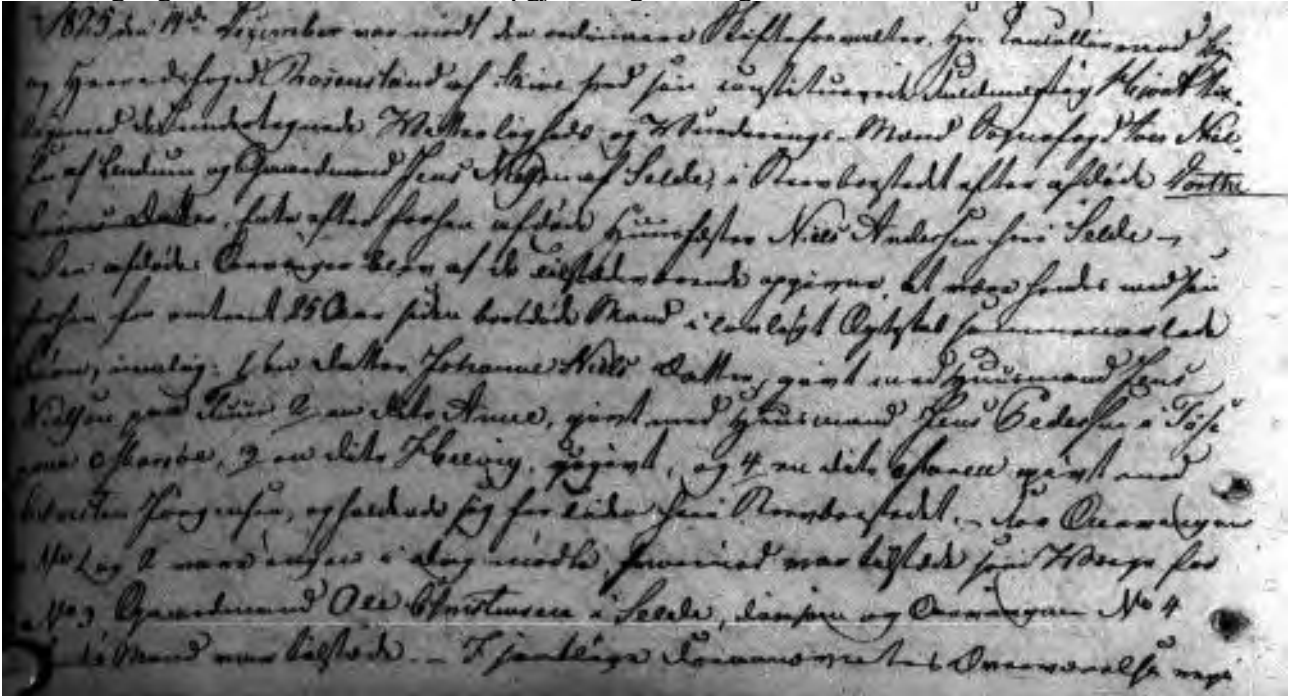 1825 den 14de December var mødt den ordinaire Skifteforvalter, Hr. Cancellieraad
og Herredsfoged Rosenstand af Skive ved sin constituerede Fuldmægtig
ligesom de undertegnede Vitterligheds og Vurderings-Mænd Sognefoged Niel-
sen af Lendum og Gaardmand Jens af Selde, i Sterboestedet efter afdøde Dorthe
Datter, Enke efter forhen afdøde Huusfæster Niels Andersen her i Selde –
Den afdødes Arvinger blev af de tilstedeværende opgivne, at være hendes med sin
forhen for omtrent 25 Aar siden bortdøde Mand i lovligt Ægteskab sammenavlede
Børn, nemlig: 1 en Datter Johanne Niels Datter, givt med Huusmand Jens
Nielsen paa Fuur 2 en dito Anne, givt med Huusmand Jens Pedersen i
paa 3 en dito ugivt, og 4 en dito Maren givt med
Christen Jørgensen, opholdende sig for Tiden her i Sterboestedet. – For Arvingen
No 1 og 2 var ingen i Dag mødte, hvorimod var tilstede som Værge for
No 3 Gaardmand Ole Christensen i Selde, og Arvingen No 4
Mand var tilstede. – I samtlige Overværelse